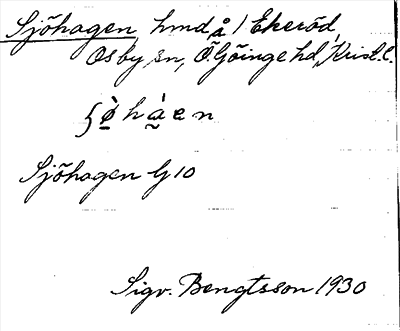 Sjöhagen, hmd å 1 Ekeröd,
Osby sn, Ö. Göinge hd, Krist. l.
Sjöhagen G 10
Sigv. Bengtsson 1930